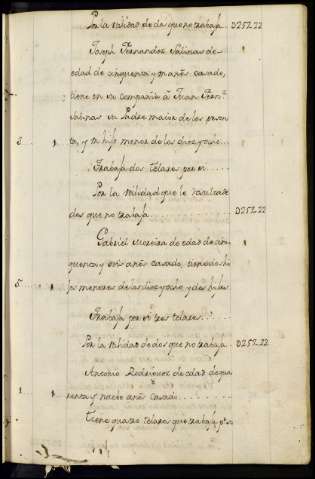 Por la utilidad de dos que no trabaja D252.22
Joseph Fernandez Salinas de
edad de cinquenta y un añ.s casado,
tiene en su compañia à Juan Fern.z
Salinas su Padre maior de los sesen
ta, y un hijo menor de los diez y ocho
3
Trabaja dos telares por si
Por la utilidad que le
des que no trabaja D252.22
Gabriel Moreira de edad de cin
quenta y seis añ.s casado, tiene dos hi
jos menores de los diez y ocho, y dos hijas
5
Trabaja por si tres telares
Por la utilidad de dos que no trabaja D252.22
Antonio Rodriguez de edad de qua
renta y nueve añ.s casado
1
Tiene quatro telares que trabaja p.r si